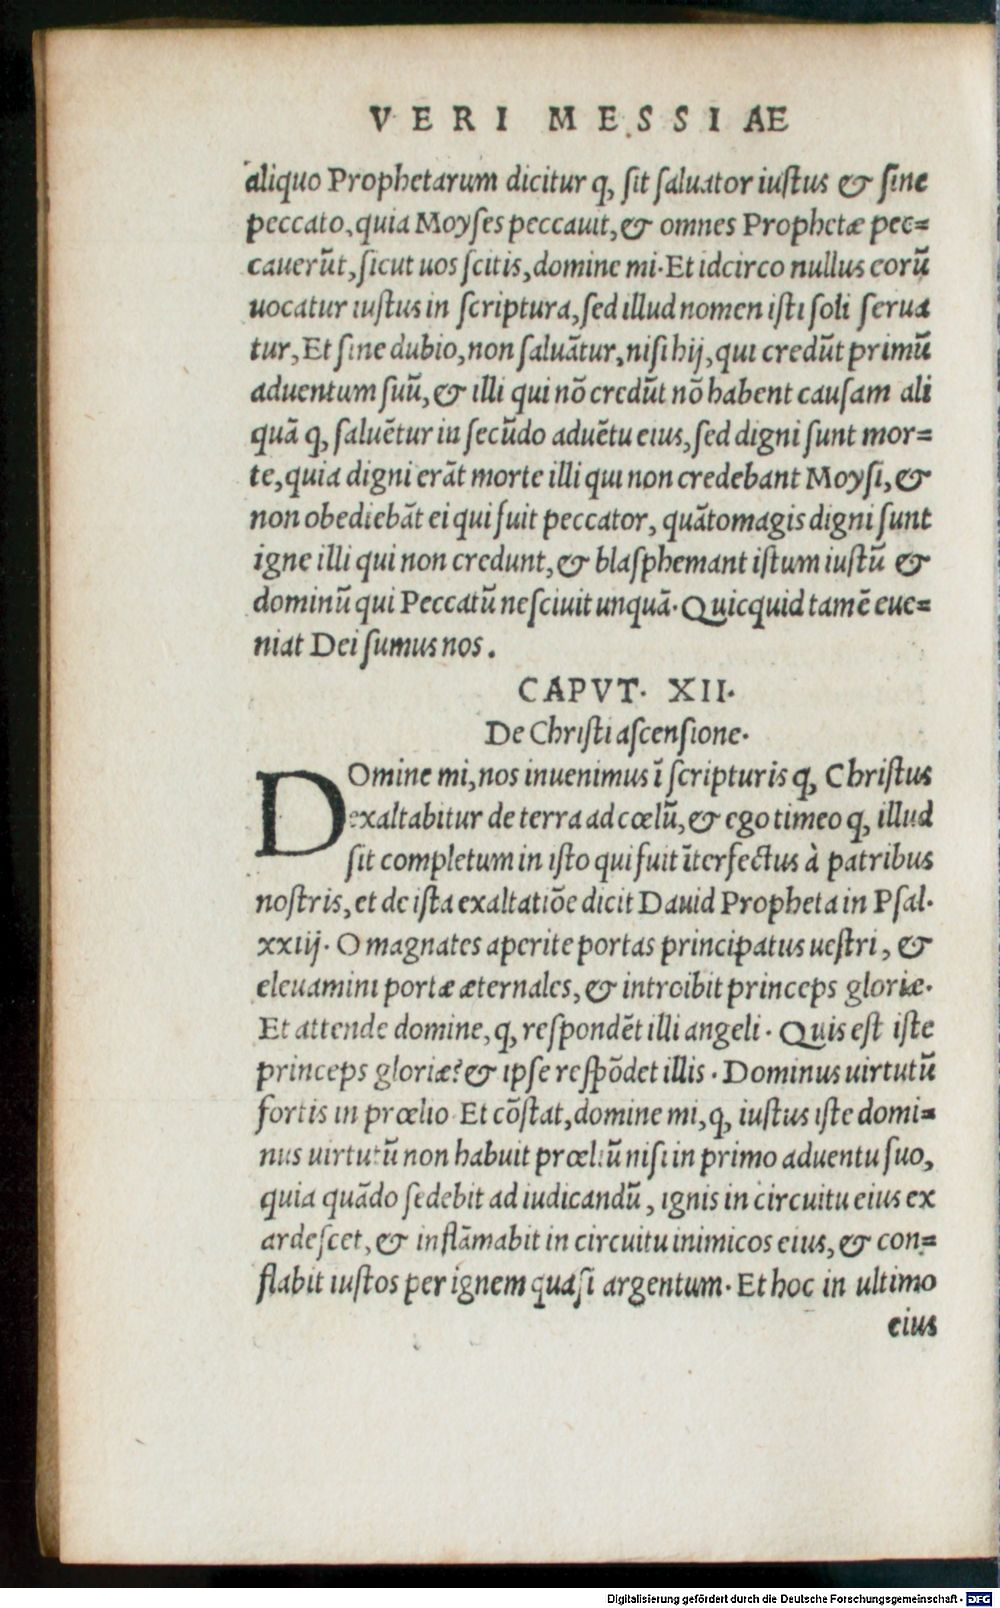 VERI MESSIAE
aliquo Prophetarum dicitur q, sit saluator iustus & sine
peccato, quia Moyses peccauit, & omnes Prophetæ pec=
cauerũt, sicut uos scitis, domine mi. Et idcirco nullus eorũ
uocatur iustus in scriptura, sed illud nomen isti soli serua
tur, Et sine dubio, non saluãtur, nisi hij, qui credũt primũ
aduentum suũ, & illi qui nõ credũt nõ habent causam ali
quã q, saluẽtur in secũdo aduẽtu eius, sed digni sunt mor=
te, quia digni erãt morte illi qui non credebant Moysi, &
non obediebãt ei qui fuit peccator, quãtomagis digni sunt
igne illi qui non credunt, & blasphemant istum iustũ &
dominũ qui Peccatũ nesciuit unquã. Quicquid tamẽ eue=
niat Dei sumus nos.
CAPVT. XII.
De Christi ascensione.
DOmine mi, nos inuenimus ĩ scripturis q, Christus
exaltabitur de terra ad cœlũ, & ego timeo q, illud
sit completum in isto qui fuit ĩterfectus à patribus
nostris, et de ista exaltatiõe dicit Dauid Propheta in Psal.
xxiij. O magnates aperite portas principatus uestri, &
eleuamini portæ æternales, & introibit princeps gloriæ.
Et attende domine, q, respondẽt illi angeli. Quis est iste
princeps gloriæ? & ipse respõdet illis. Dominus uirtutũ
fortis in prœlio Et cõstat, domine mi, q, iustus iste domi=
nus uirtutũ non habuit prœliũ nisi in primo aduentu suo,
quia quãdo sedebit ad iudicandũ, ignis in circuitu eius ex
ardescet, & inflãmabit in circuitu inimicos eius, & con=
flabit iustos per ignem quasi argentum. Et hoc in ultimo
eius
Digitalisierung gefördert durch die Deutsche Forschungsgemeinschaft - DFG